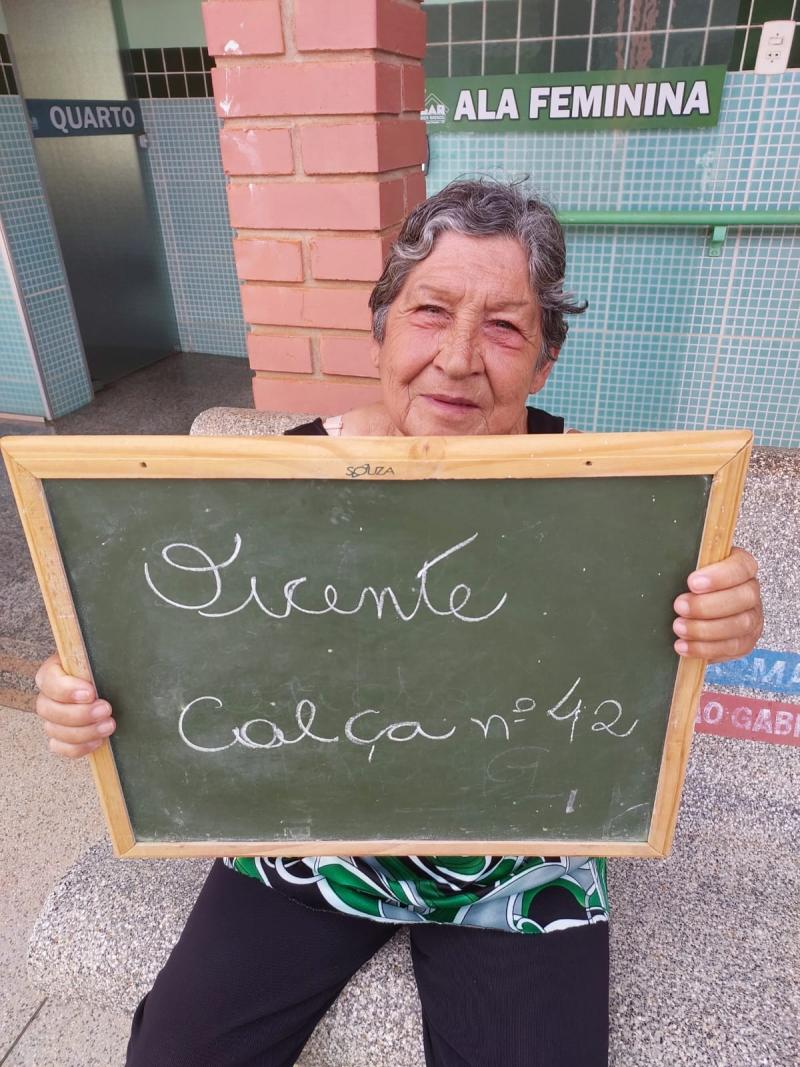 QUARTO
ALA FEMININA
SOUZA
Vicente
Calça nº 42
G